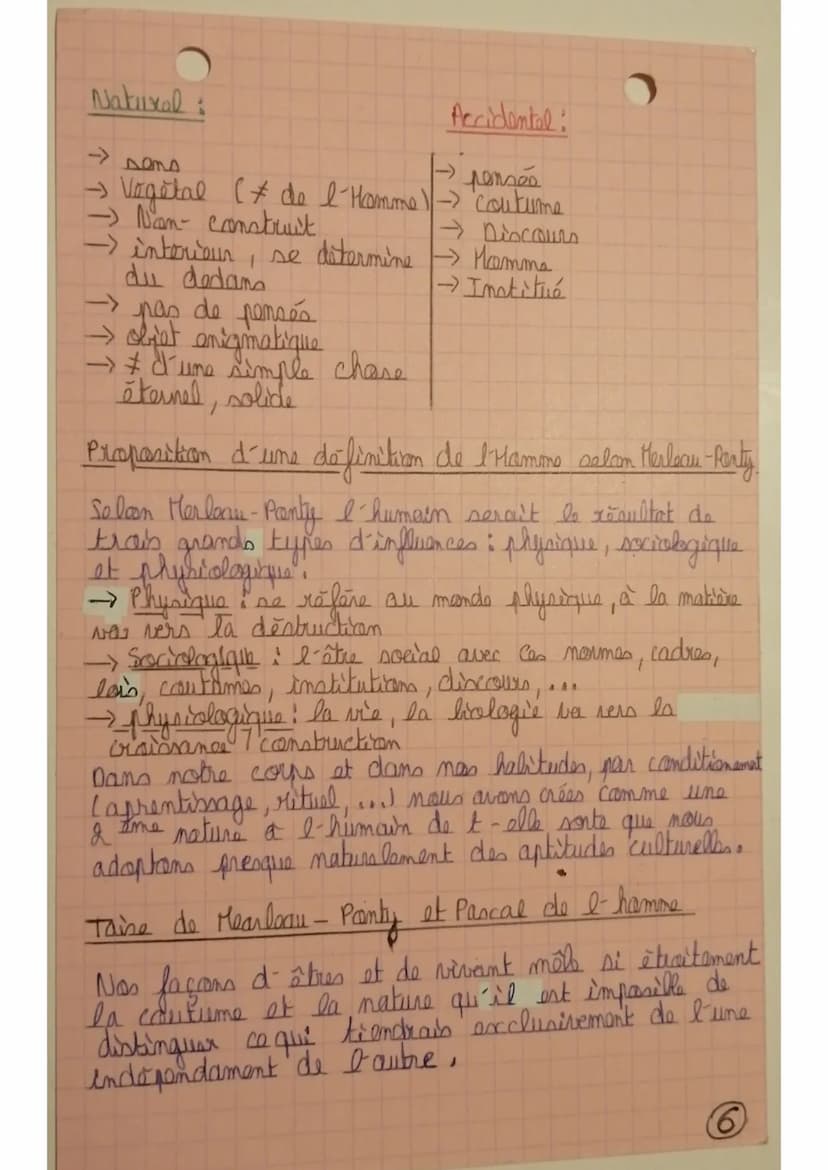 Naturel :
→ sens
→ Végétal (≠ de l'Homme)
→ Non-construit
→ intérieur, se détermine
du dedans
→ pas de pensés
→ objet énigmatique
→ ≠ d'une simple chose
éternel, solide
Accidentel :
→ pensée
→ Coutume
→ Discours
→ Homme
→ Institué
Proposition d'une définition de l'Homme selon Merleau-Ponty.
Seloon Merleau-Ponty l'humain serait le résultat de
trois grands types d'influences : physique, sociologique
et physiologique.
→ Physique : se réfère au monde physique, à la matière
vas vers la déstruction
→ Sociologique : l'être social avec ces normes, cadres,
lois, coutûmes, institutions, discours, ...
→ physiologique : la vie, la biologie va vers la
croissance / construction
Dans notre corps et dans nos habitudes, par conditionement
(aprentissage, rituel, ...) nous avons crées comme une
2 ème nature à l'humain de t-elle sorte que nous
adoptons presque naturalement des aptitudes culturelles.
Taise de Mearleau-Ponty et Pascal de l'homme
Nos façons d'êtres et de vivant mêle si étroitement
la coutume et la nature qu'il est impossible de
distinguer ce qui tiendrais exclusivement de l'une
indépendament de l'autre.
6